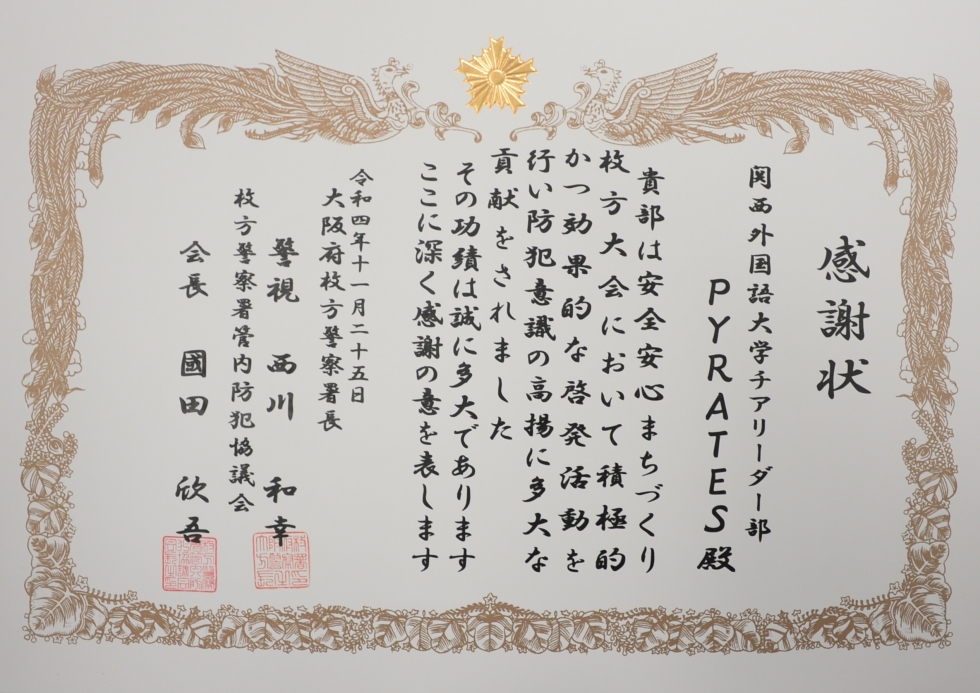 感謝状
関西外国語大学チアリーダー部
PYRATES殿
貴部は安全安心まちづくり
枚方大会において積極的
かつ効果的な啓発活動を
行い防犯意識の高揚に多大な
貢献をされました
その功績は誠に多大であります
ここに深く感謝の意を表します
令和四年十一月二十五日
大阪府枚方警察署長
警視 西川 和幸
枚方警察署管内防犯協議会
会長 國田 欣吾